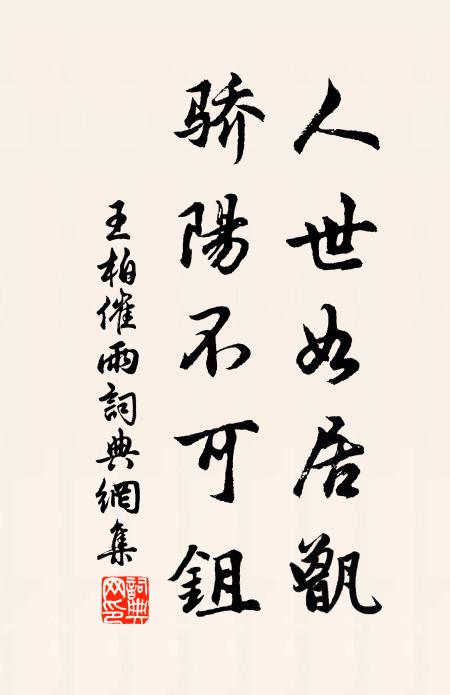 人世如居甑
骄陽不可鉏
王柏催雨詞典網集
詞典網印